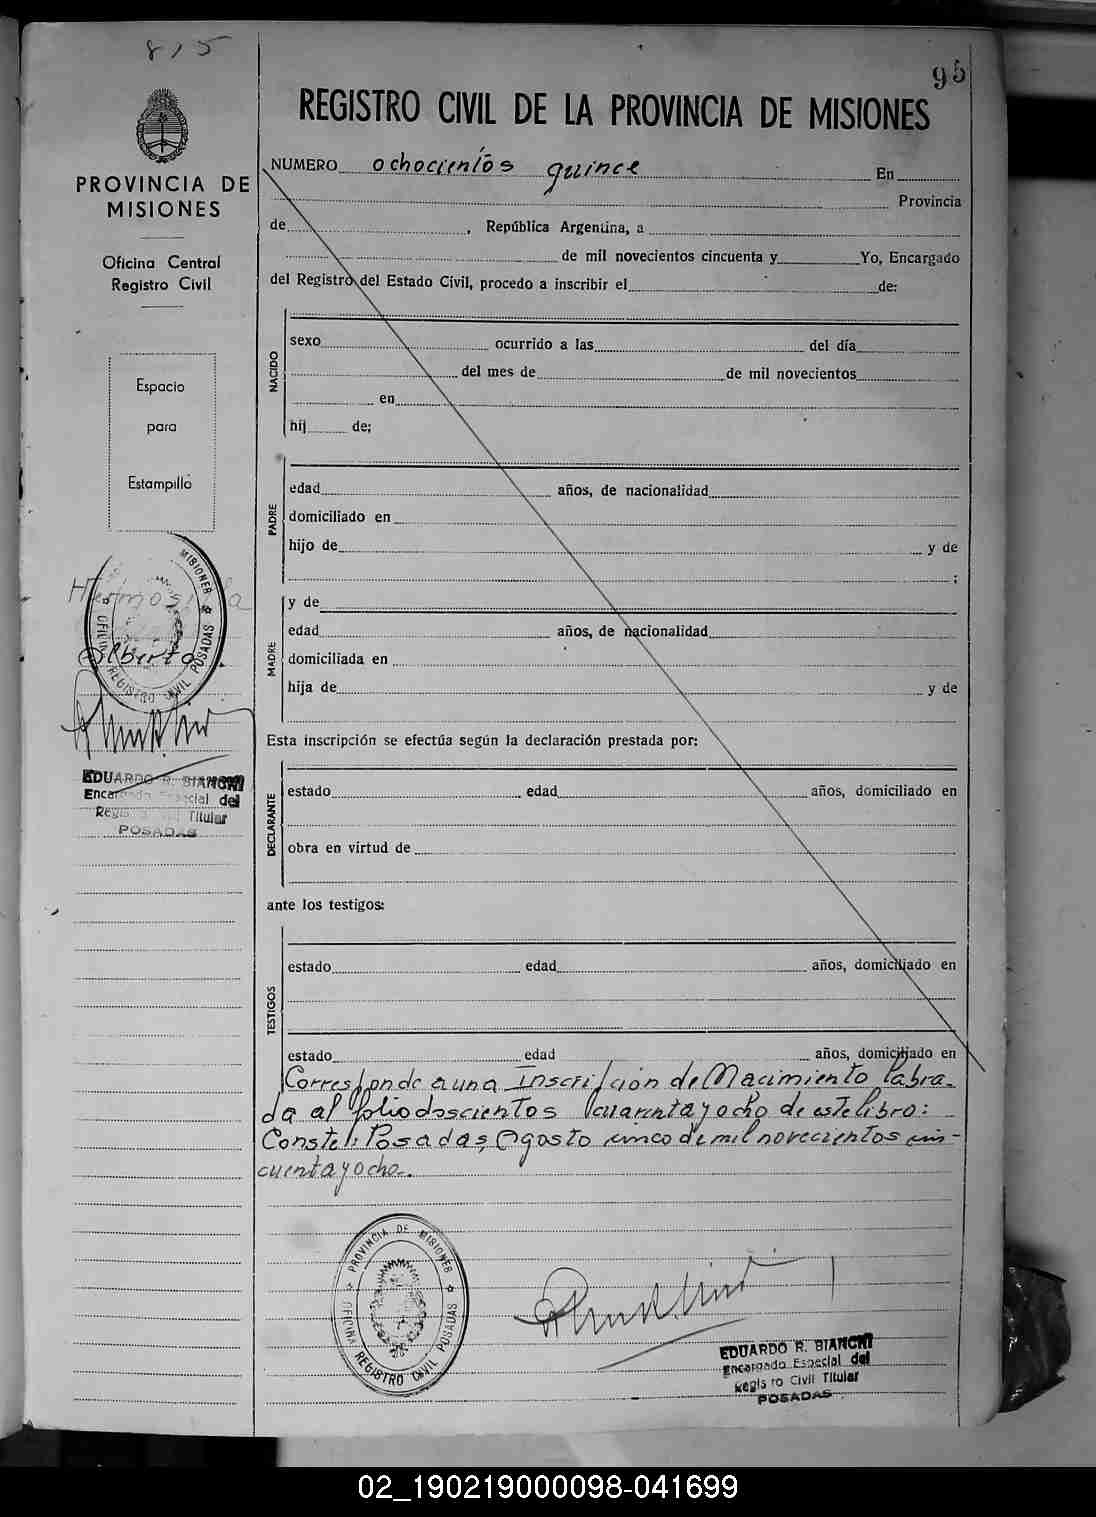 815
95
REGISTRO CIVIL DE LA PROVINCIA DE MISIONES
PROVINCIA DE
MISIONES
Oficina Central
Registro Civil
Espacio
para
Estampilla
Alberto
EDUARDO R. BIANCHI
Encargado Especial del
Registro Civil Titular
POSADAS
NUMERO ochocientos quince En
Provincia
de , República Argentina, a
de mil novecientos cincuenta y Yo, Encargado
del Registro del Estado Civil, procedo a inscribir el de:
NACIDO
sexo ocurrido a las del día
del mes de de mil novecientos
en
hij de;
PADRE
edad años, de nacionalidad
domiciliado en
hijo de y de
;
MADRE
y de
edad años, de nacionalidad
domiciliada en
hija de y de
Esta inscripción se efectúa según la declaración prestada por:
DECLARANTE
estado edad años, domiciliado en
obra en virtud de
ante los testigos:
TESTIGOS
estado edad años, domiciliado en
estado edad años, domiciliado en
Corresponde a una Inscripción de Nacimiento labra-
da al folio doscientos cuarenta y ocho de este libro:
Conste: Posadas, Agosto cinco de mil novecientos cin-
cuenta y ocho.
PROVINCIA DE MISIONES
OFICINA REGISTRO CIVIL POSADAS
EDUARDO R. BIANCHI
Encargado Especial del
Regis ro Civil Titular
POSADAS
02_190219000098-041699